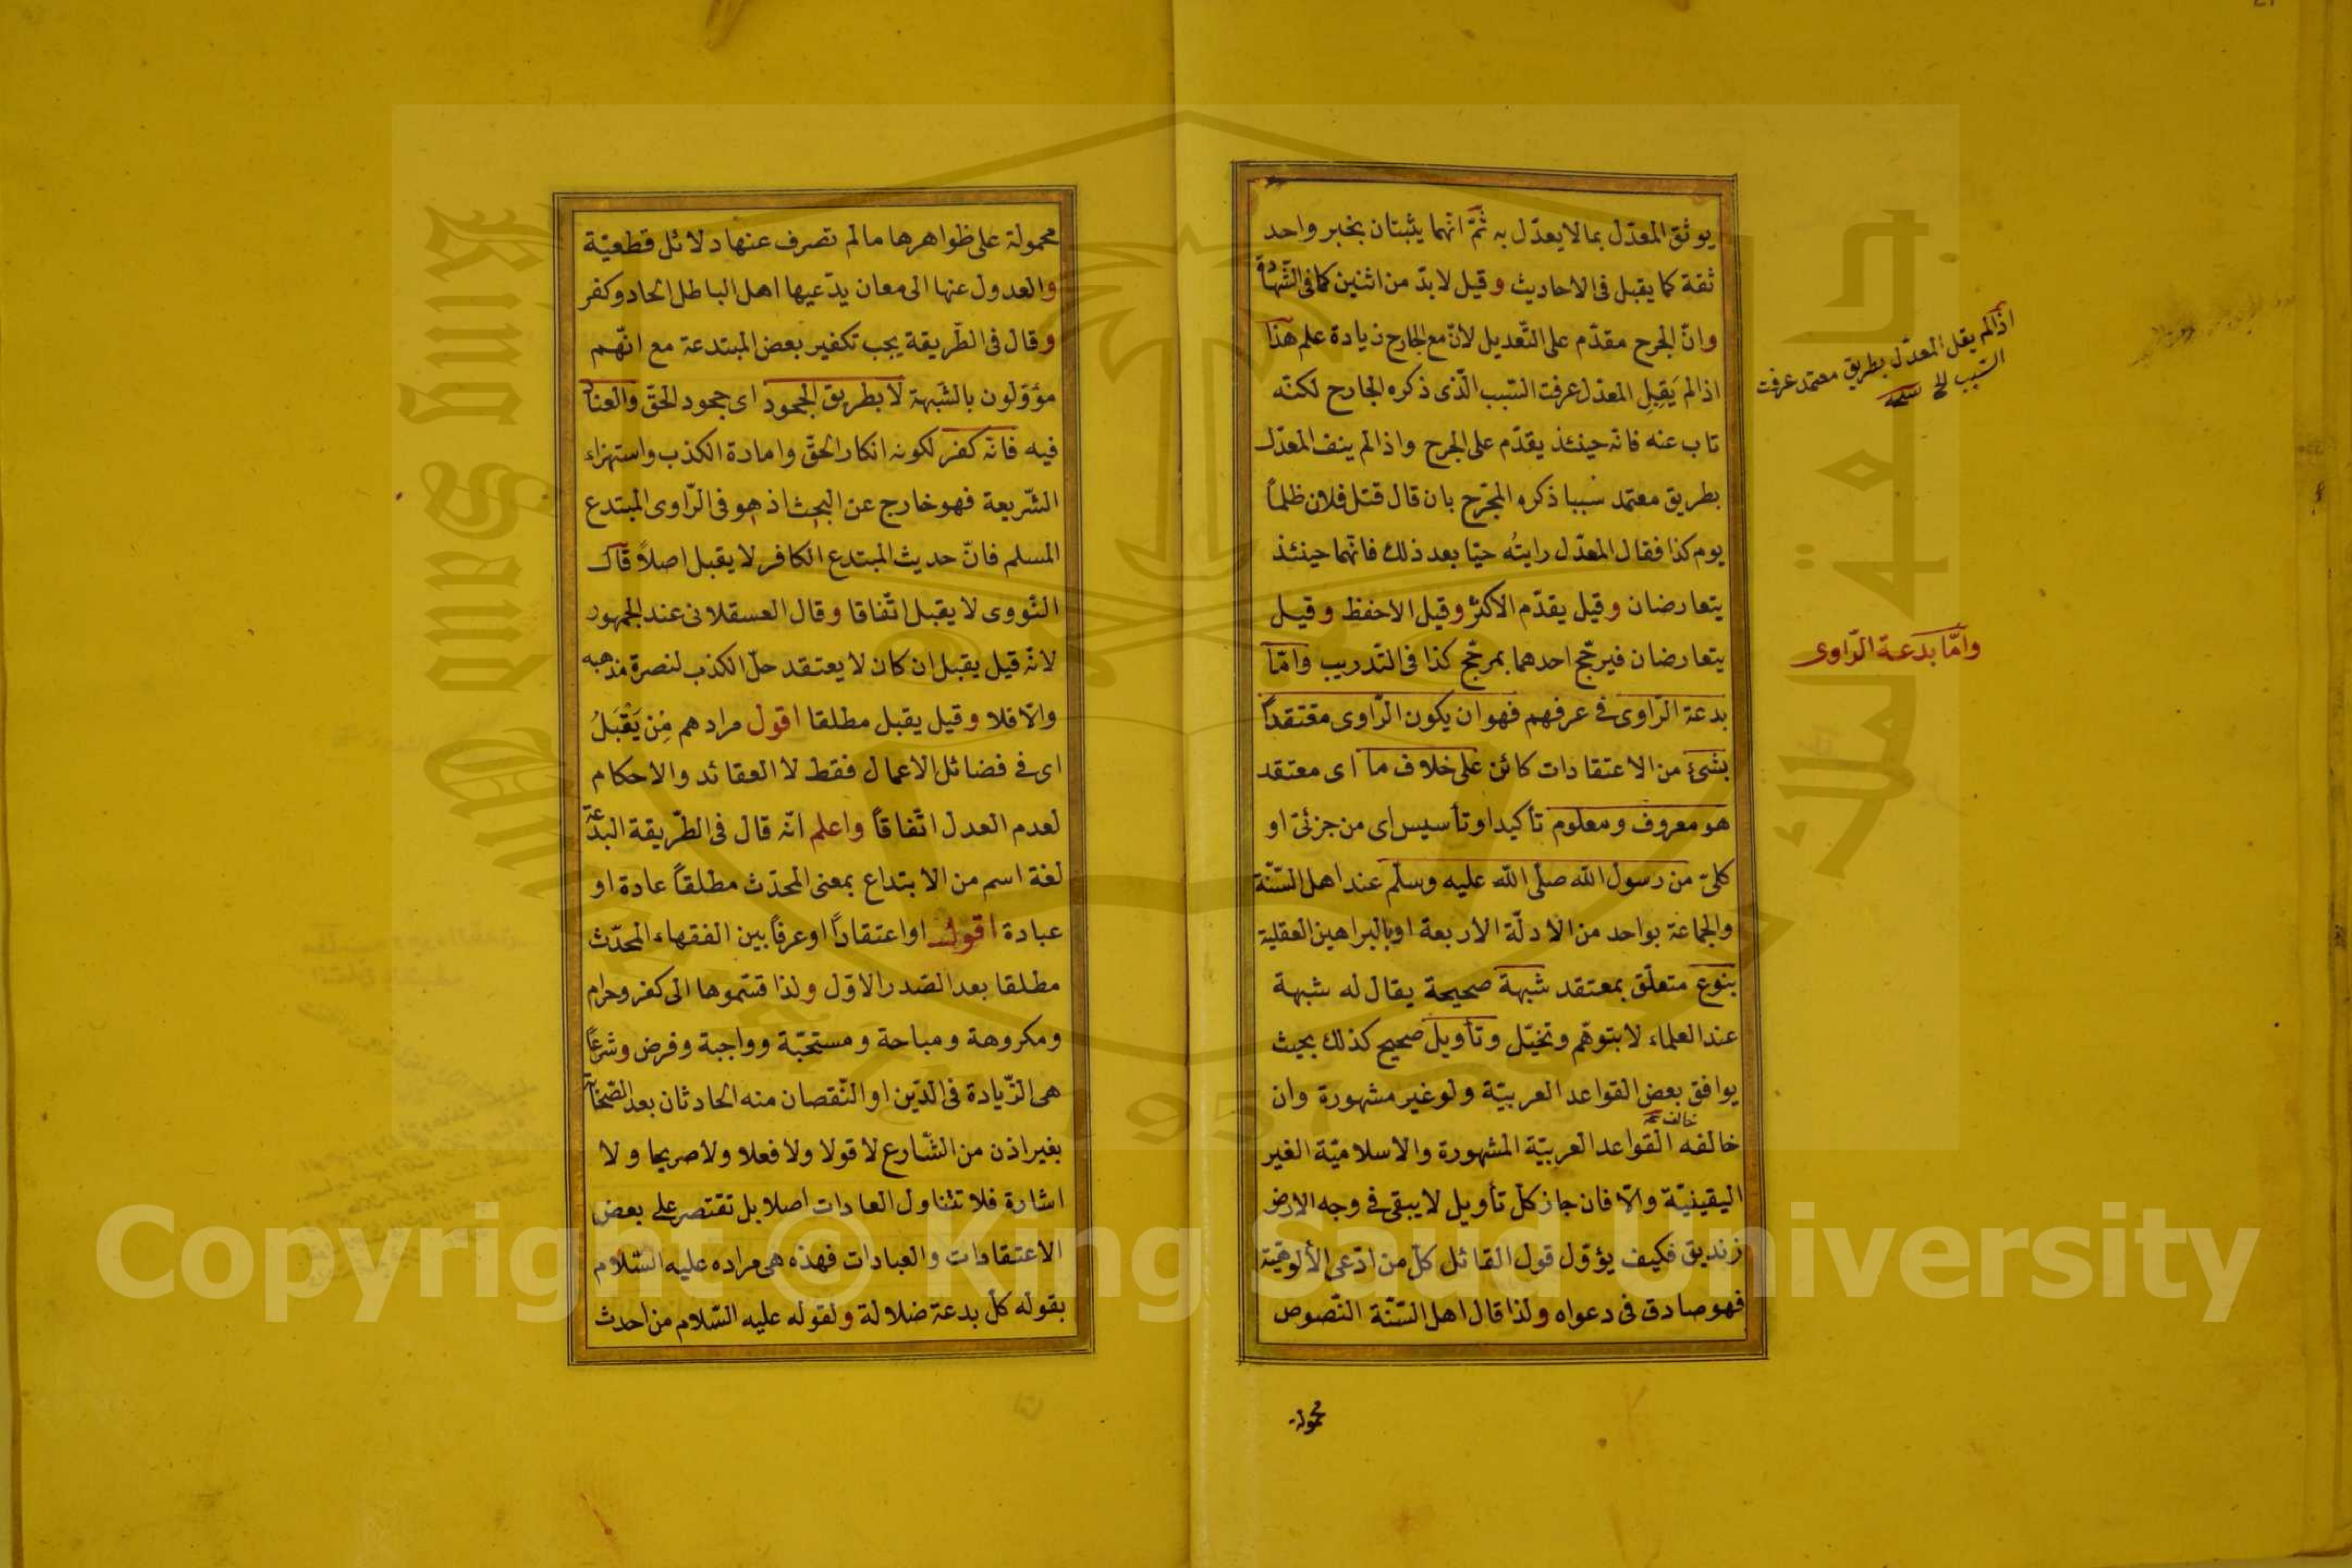 يوثق المعدّل بما لا يعدّل به ثمّ انّهما يثبتان بخبر واحد
ثقة كما يقبل فى الاحاديث وقيل لا بدّ من اثنين كما فى الشّهادة
وانّ الجرح مقدّم على التّعديل لانّ مع الجارح زيادة علم هذا
اذا لم يَقبِلِ المعدّل عرفت السّبب الّذى ذكره الجارح لكنّه
تاب عنه فانّه حينئذ يقدّم على الجرح واذا لم ينف المعدّل
بطريق معتمد سببا ذكره المجرّح بان قال قتل فلان ظلماً
يوم كذا فقال المعدّل رايتُه حيّا بعد ذلك فانّهما حينئذ
يتعارضان وقيل يقدّم الاكثر وقيل الاحفظ وقيل
يتعارضان فيرجّح احدهما بمرجّح كذا فى التّدريب وامّا
بدعة الرّاوى فى عرفهم فهو ان يكون الرّاوى مقتقداً
بشئ من الاعتقادات كائن على خلاف ما اى معتقد
هو معروف ومعلوم تأكيد او تأسيس اى من جزئىّ او
كلىّ من رسول الله صلّى الله عليه وسلّم عند اهل السّنّة
والجماعة بواحد من الادلّة الاربعة او بالبراهين العقلية
بنوع متعلّق بمعتقد شبهة صحيحة يقال له شبهة
عند العلماء لا بتوهّم وتخيّل وتأويل صحيح كذلك بحيث
يوافق بعض القواعد العربيّة ولو غير مشهورة وان
خالف
خالفه القواعد العربيّة المشهورة والاسلاميّة الغير
اليقينيّة والّا فان جاز كلّ تأويل لا يبقى فى وجه الارض
زنديق فكيف يؤوّل قول القائل كلّ من ادّعى الألوهيّة
فهو صادق فى دعواه ولذا قال اهل السّنّة النّصوص
محمولة
اذا لم يقل المعدّل بطريق معتمد عرفت
السّبب الخ نسخه
وامّا بدعة الرّاوى
محمولة على ظواهرها ما لم تصرف عنها دلائل قطعيّة
والعدول عنها الى معان يدّعيها اهل الباطل الحاد وكفر
وقال فى الطّريقة يجب تكفير بعض المبتدعة مع انّهم
مؤوّلون بالشّبهة لا بطريق الجحود اى جحود الحقّ والعناد
فيه فانّه كفر لكونه انكار الحقّ وامارة الكذب واستهزاء
الشّريعة فهو خارج عن البحث اذ هو فى الرّاوى المبتدع
المسلم فانّ حديث المبتدع الكافر لا يقبل اصلاً قال
النّووى لا يقبل اتّفاقا وقال العسقلانى عند الجمهور
لانّه قيل يقبل ان كان لا يعتقد حلّ الكذب لنصرة مذهبه
والّا فلا وقيل يقبل مطلقا اقول مرادهم مِن يَقْبَلُ
اى فى فضائل الاعمال فقط لا العقائد والاحكام
لعدم العدل اتّفاقاً واعلم انّه قال فى الطّريقة البدعة
لغة اسم من الابتداع بمعنى المحدَث مطلقاً عادة او
عبادة اقول او اعتقاداً او عرفاً بين الفقهاء المحدَث
مطلقا بعد الصّدر الاوّل ولذا قسّموها الى كفر وحرام
ومكروهة ومباحة ومستحبّة وواجبة وفرض وشرعاً
هى الزّيادة فى الدّين او النّقصان منه الحادثان بعد الصّحابة
بغير اذن من الشّارع لا قولا ولا فعلا ولا صريحا ولا
اشارة فلا تتناول العادات اصلا بل تقتصر على بعض
الاعتقادات والعبادات فهذه هى مراده عليه السّلام
بقوله كلّ بدعة ضلالة ولقوله عليه السّلام من احدث
Copyright © King Saud University
King Saud University
جامعة الملك سعود
1957